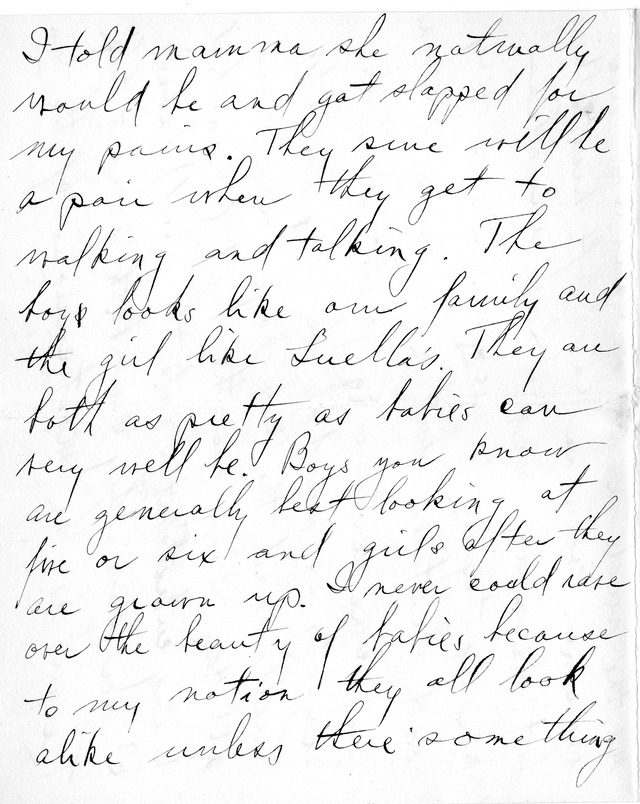 I told mamma she natwually
would be and got slapped for
my pains. They sure will be
a pair when they get to
walking and talking. The
boys looks like our family and
the girl like Luella's. They are
both as pretty as babies can
very well be. Boys you know
are generally best looking at
five or six and girls after they
are grown up. I never could rave
over the beauty of babies because
to my notion they all look
alike unless there something